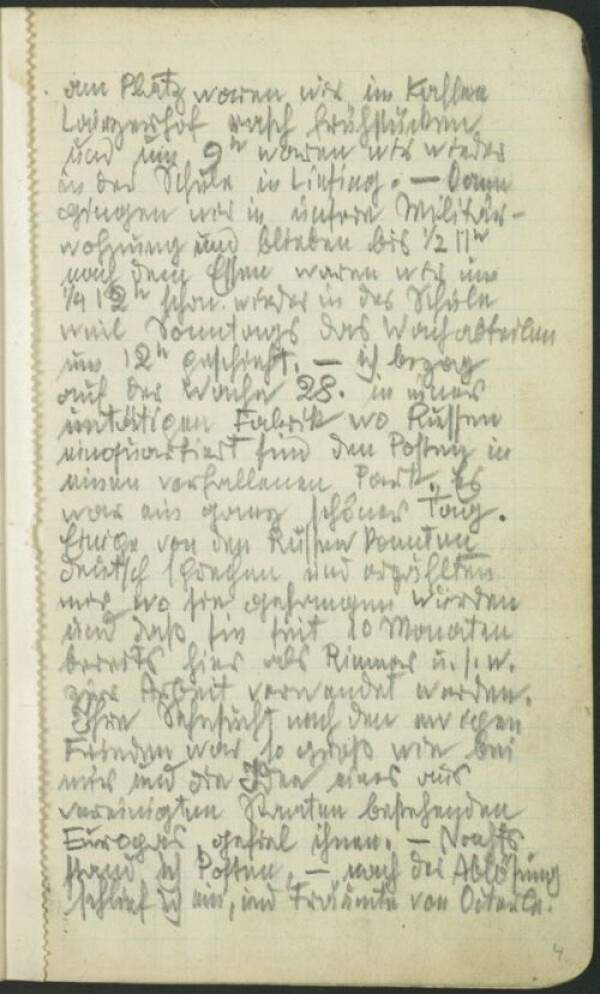 am Platz waren wir im Kaffee
Lainzerhof rasch frühstücken
und um 9h waren wir wieder
in der Schule in Liesing. – Dann
gingen wir in unsere Militär-
wohnung und blieben bis 1/2 11h
nach dem Essen waren wir um
1/4 12h schon wieder in der Schule
weil Sonntags das Wachabteilen
um 12h geschieht. – ich bezog
auf der Wache 28. in einer
untätigen Fabrik wo Russen
einquartiert sind den Posten in
einen verfallenen Park. Es
war ein ganz schöner Tag.
Einige von den Russen konnten
deutsch sprechen und erzählten
mir wo sie gefangen wurden
und daß sie seit 10 Monaten
bereits hier als u.s.w.
zur Arbeit verwendet werden.
Ihre Sehnsucht nach den ewigen
Frieden war so groß wie bei
mir und die Idee eines aus
vereinigten Staaten bestehenden
Europas gefiel ihnen. – Nachts
stand ich Posten, – nach der Ablösung
schlief ich ein, und träumte von
4.